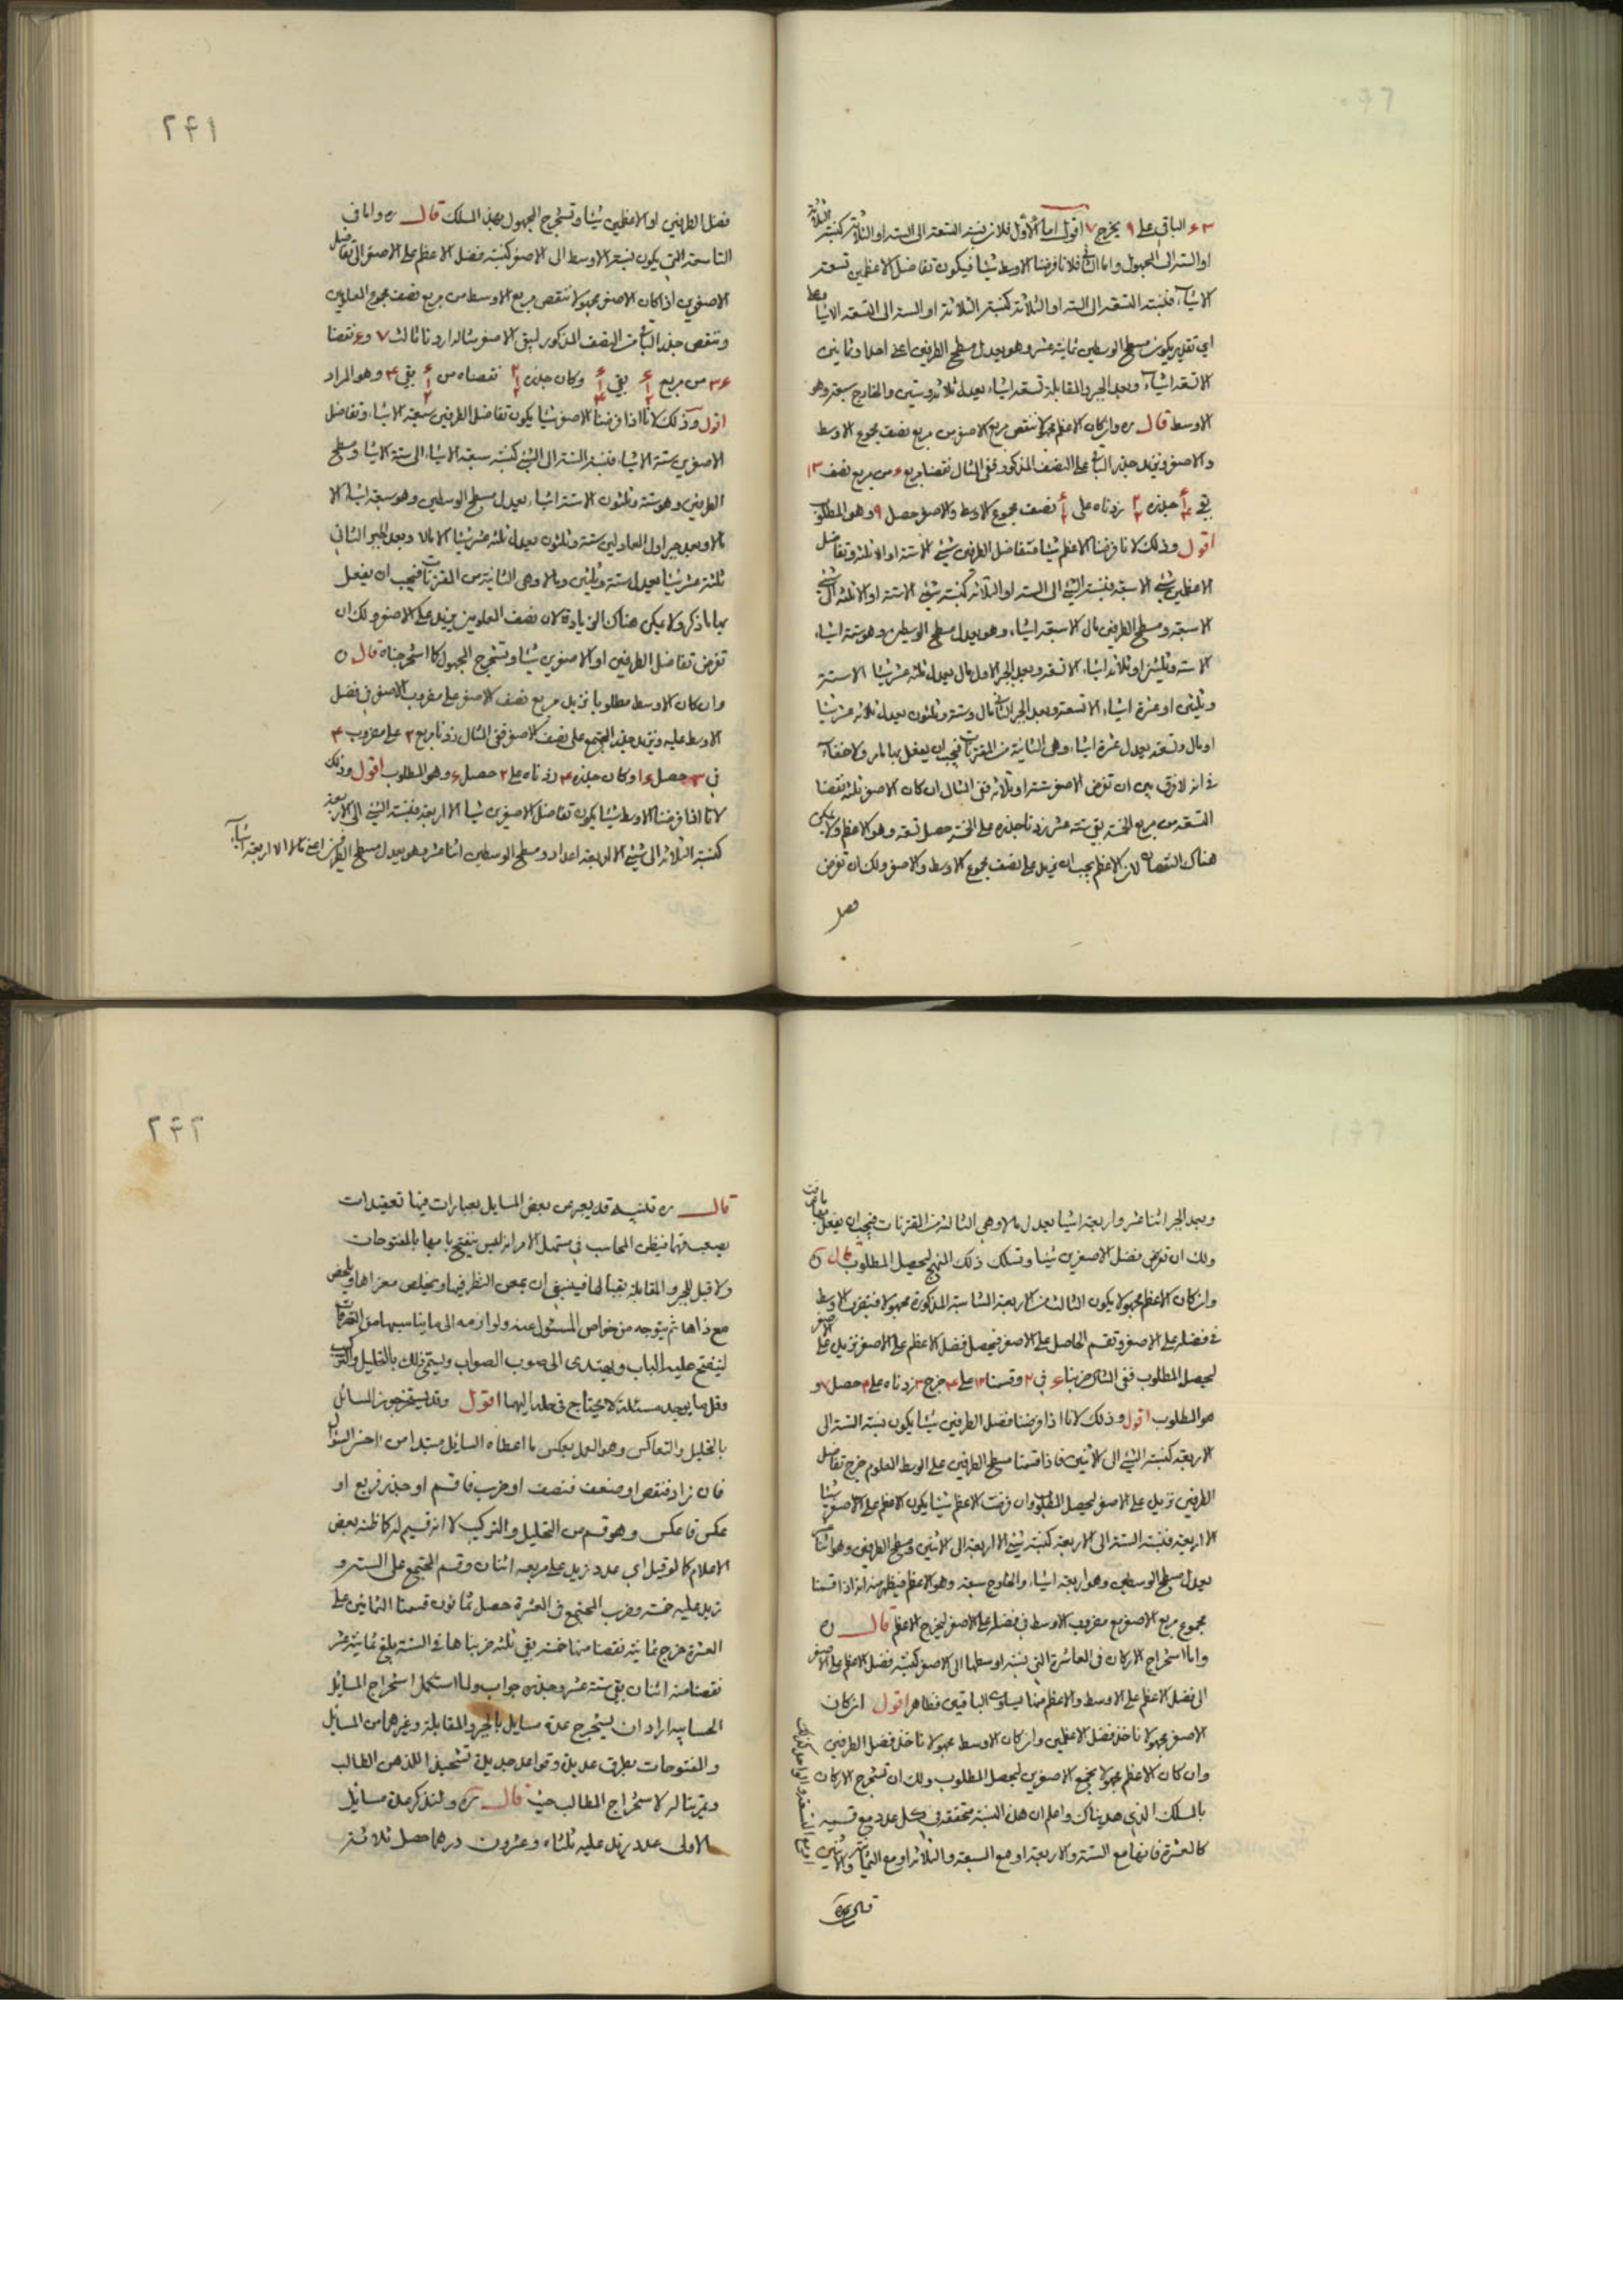 ٦٣ الباقي على ٩ يخرج ٧ اقول اما الاول فلان نسبة التسعة الى الستة او الثلاثة كنسبة الثلاثة
او الستة الى المجهول واما الثاني فلانا فرضنا الاوسط شيئا فيكون تفاضل الاعظمين تسعة
الا شيئا فنسبة التسعة الى الستة او الثلاثة كنسبة الثلاثة او الستة الى التسعة الا شيئا
اي تقدير يكون مسطح الوسطين ثمانية عشر وهو يعدل مسطح الطرفين اعني احدا وثمانين
الا تسعة اشياء وبعد الجبر والمقابلة تسعة اشياء يعدل ثلاثة وستين والخارج سبعة وهو
الاوسط قال ره وان كان الاعظم مجهولا ننقص مربع الاصغر من مربع نصف مجموع الاوسط
والاصغر ونزيد جذر الباقي على النصف المذكور ففي المثال نقصنا مربع من مربع نصف ١٣
بقي جذره زدناه على نصف مجموع الاوسط والاصغر حصل ٩ وهو المطلوب
اقول وذلك لانا فرضنا الاعظم شيئا فتفاضل الطرفين شيء الا ستة او الا ثلثة وتفاضل
الاعظمين شيء الا سبعة فنسبة الشيء الى الستة او الثلاثة كنسبة شيء الا ستة او الا ثلثة الى شيء
الا سبعة ومسطح الطرفين مال الا سبعة اشياء وهو يعدل مسطح الوسطين وهو ستة اشياء
الا ستة وثلثين او ثلاثة اشياء الا تسعة وبعد الجبر الاول مال يعدل ثلثة عشر شيئا الا ستة
وثلثين او عشرة اشياء الا تسعة وبعد الجبر الثاني مال وستة وثلثون يعدل ثلاثة عشر شيئا
او مال وتسعة يعدل عشرة اشياء وهي الثانية من المقترنات فيجب ان يفعل بها ما مر ولا خفاء
في انه لا فرق بين ان تفرض الاصغر ستة او ثلاثة ففي المثال ان كان الاصغر ثلثة نقصنا
التسعة من مربع الخمسة بقي ستة عشر زدنا جذره على الخمسة حصل تسعة وهو الاعظم ولا يمكن
هناك النقصان لان الاعظم يجب ان يزيد على نصف مجموع الاوسط والاصغر ولك ان تفرض
فضل
٢٤١
فضل الطرفين او الاعظمين شيئا وتستخرج المجهول بهذا المسلك قال ره واما في
التاسعة التي يكون نسبة الاوسط الى الاصغر كنسبة فضل الاعظم على الاصغر الى تفاضل
الاصغرين اذا كان الاصغر مجهولا ننقص مربع الاوسط من مربع نصف مجموع المعلومين
وننقص جذر الباقي من النصف المذكور ليبقى الاصغر مثاله اردنا ثالث ٧ و ٦ نقصنا
٣٦ من مربع بقي وكان جذره نقصناه من بقي ٤ وهو المراد
اقول وذلك لانا اذا فرضنا الاصغر شيئا يكون تفاضل الطرفين سبعة الا شيئا وتفاضل
الاصغرين ستة الا شيئا فنسبة الستة الى الشيء كنسبة سبعة الا شيئا الى ستة الا شيئا ومسطح
الطرفين وهو ستة وثلثون الا ستة اشياء يعدل مسطح الوسطين وهو سبعة اشياء الا
مالا وبعد جبر اول المعادلين ستة وثلثون يعدل ثلثة عشر شيئا الا مالا وبعد الجبر الثاني
ثلثة عشر شيئا يعدل ستة وثلثين ومالا وهي الثانية من المقترنات فيجب ان يفعل
بها ما ذكر ولا يمكن هناك الزيادة لان نصف المعلومين يزيد على الاصغر ولك ان
تفرض تفاضل الطرفين او الاصغرين شيئا وتستخرج المجهول كما استخرجناه قال ره
وان كان الاوسط مطلوبا نزيد مربع نصف الاصغر على مضروب الاصغر في فضل
الاوسط عليه ونزيد جذر المجتمع على نصف الاصغر ففي المثال زدنا مربع ٢ على مضروب ٤
في ٣ حصل ١٦ وكان جذره ٤ زدناه على ٢ حصل ٦ وهو المطلوب اقول وذلك
لانا اذا فرضنا الاوسط شيئا يكون تفاضل الاصغرين شيئا الا اربعة فنسبة الشيء الى الاربعة
كنسبة الثلاثة الى شيء الا اربعة اعداد ومسطح الوسطين اثنا عشر وهو يعدل مسطح الطرفين اعني مالا الا اربعة اشياء
وبعد الجبر اثنا عشر واربعة اشيا يعدل مالا وهي الثالثة من المقترنات فيجب ان يفعل بها ما عرفت
ولك ان تفرض فضل الاصغرين شيئا وتسلك ذلك النهج ليحصل المطلوب قال ره
وان كان الاعظم مجهولا يكون الثالث من الاربعة المتناسبة المذكورة مجهولا فنضرب الاوسط
في فضله على الاصغر ونقسم الحاصل على الاصغر فيحصل فضل الاعظم على الاصغر نزيد على الاصغر
ليحصل المطلوب ففي المثال ضربنا ٦ في ٢ وقسمنا ١٢ على ٤ خرج ٣ زدناه على ٤ حصل ٧ و
هو المطلوب اقول وذلك لانا اذا فرضنا فضل الطرفين شيئا يكون نسبة الستة الى
الاربعة كنسبة الشيء الى الاثنين فاذا قسمنا مسطح الطرفين على الوسط المعلوم خرج تفاضل
الطرفين نزيد على الاصغر ليحصل المطلوب وان فرضت الاعظم شيئا يكون الاعظم على الاصغر شيئا
الا اربعة فنسبة الستة الى الاربعة كنسبة شيء الا اربعة الى الاثنين ومسطح الطرفين وهو اثنا عشر
يعدل مسطح الوسطين وهو اربعة اشياء والخارج سبعة وهو الاعظم فيظهر منه انه اذا قسمنا
مجموع مربع الاصغر مع مضروب الاوسط في فضله على الاصغر ليخرج الاعظم قال ره
واما استخراج الاركان في العاشرة التي نسبة اوسطها الى الاصغر كنسبة فضل الاعظم على الاصغر
الى فضل الاعظم على الاوسط والاعظم منها يساوي الباقيين فظاهر اقول ان كان
الاصغر مجهولا ناخذ فضل الاعظمين وان كان الاوسط مجهولا ناخذ فضل الطرفين
وان كان الاعظم مجهولا نجمع الاصغرين ليحصل المطلوب ولك ان تستخرج الاركان
بالمسلك الذي هديناك واعلم ان هذه النسبة متحققة في كل عدد مع قسميه
كالعشرة فانها مع الستة والاربعة او مع السبعة والثلاثة او مع الثمانية والاثنين
او مع التسعة والواحد
٢٤٢
قال ره تنبيه قد يعرض بعض المسايل بعبارات فيها تعقيدات
يصعب فهمها فيظن المحاسب في مستهل الامر انه ليس ينفتح بابها بالمفتوحات
ولا قبل للجبر والمقابلة بقبالها فينبغي ان يمعن النظر فيها ويخلص مغزاها ويلخص
مع ذاها ثم يتوجه من خواص المسئول عنه ولوازمه الى ما يناسبها من التصرفات
لينفتح عليه الباب ويهتدى الى صوب الصواب ويستمى ذلك بالتحليل والتركيب
وقل ما يوجد مسئلة لا يحتاج في حلها اليهما اقول وقد يستخرج من المسائل
بالتحليل والتعاكس وهو العمل بعكس ما اعطاه السائل مبتدا من اخر السؤال
فان زاد فنقص او ضعف فنصف او ضرب فاقسم او جذر فربع او
عكس فاعكس وهو قسم من التحليل والتركيب لا انه قسيم له كما ظنه بعض
الاعلام كما لو قيل اي عدد زيد على مربعه اثنان وقسم المجتمع على الستة و
زيد عليه خمسة وضرب المجتمع في العشرة حصل ثمانون قسمنا الثمانين على
العشرة خرج ثمانية نقصنا منها خمسة بقي ثلثة ضربناها في الستة بلغ ثمانية عشر
نقصنا منه اثنان بقي ستة عشر وجذره جواب ولما استكمل استخراج المسائل
الحسابية اراد ان يستخرج عدة مسايل بالجبر والمقابلة وغيرهما من المسائل
والمفتوحات بطرق عديدة وقواعد جديدة تشحيذا للذهن الطالب
وتمرينا له لاستخراج المطالب حيث قال ره ولنذكر عدة مسائل
الاولى عدد زيد عليه ثلثاه وعشرون درهما حصل ثلاثة